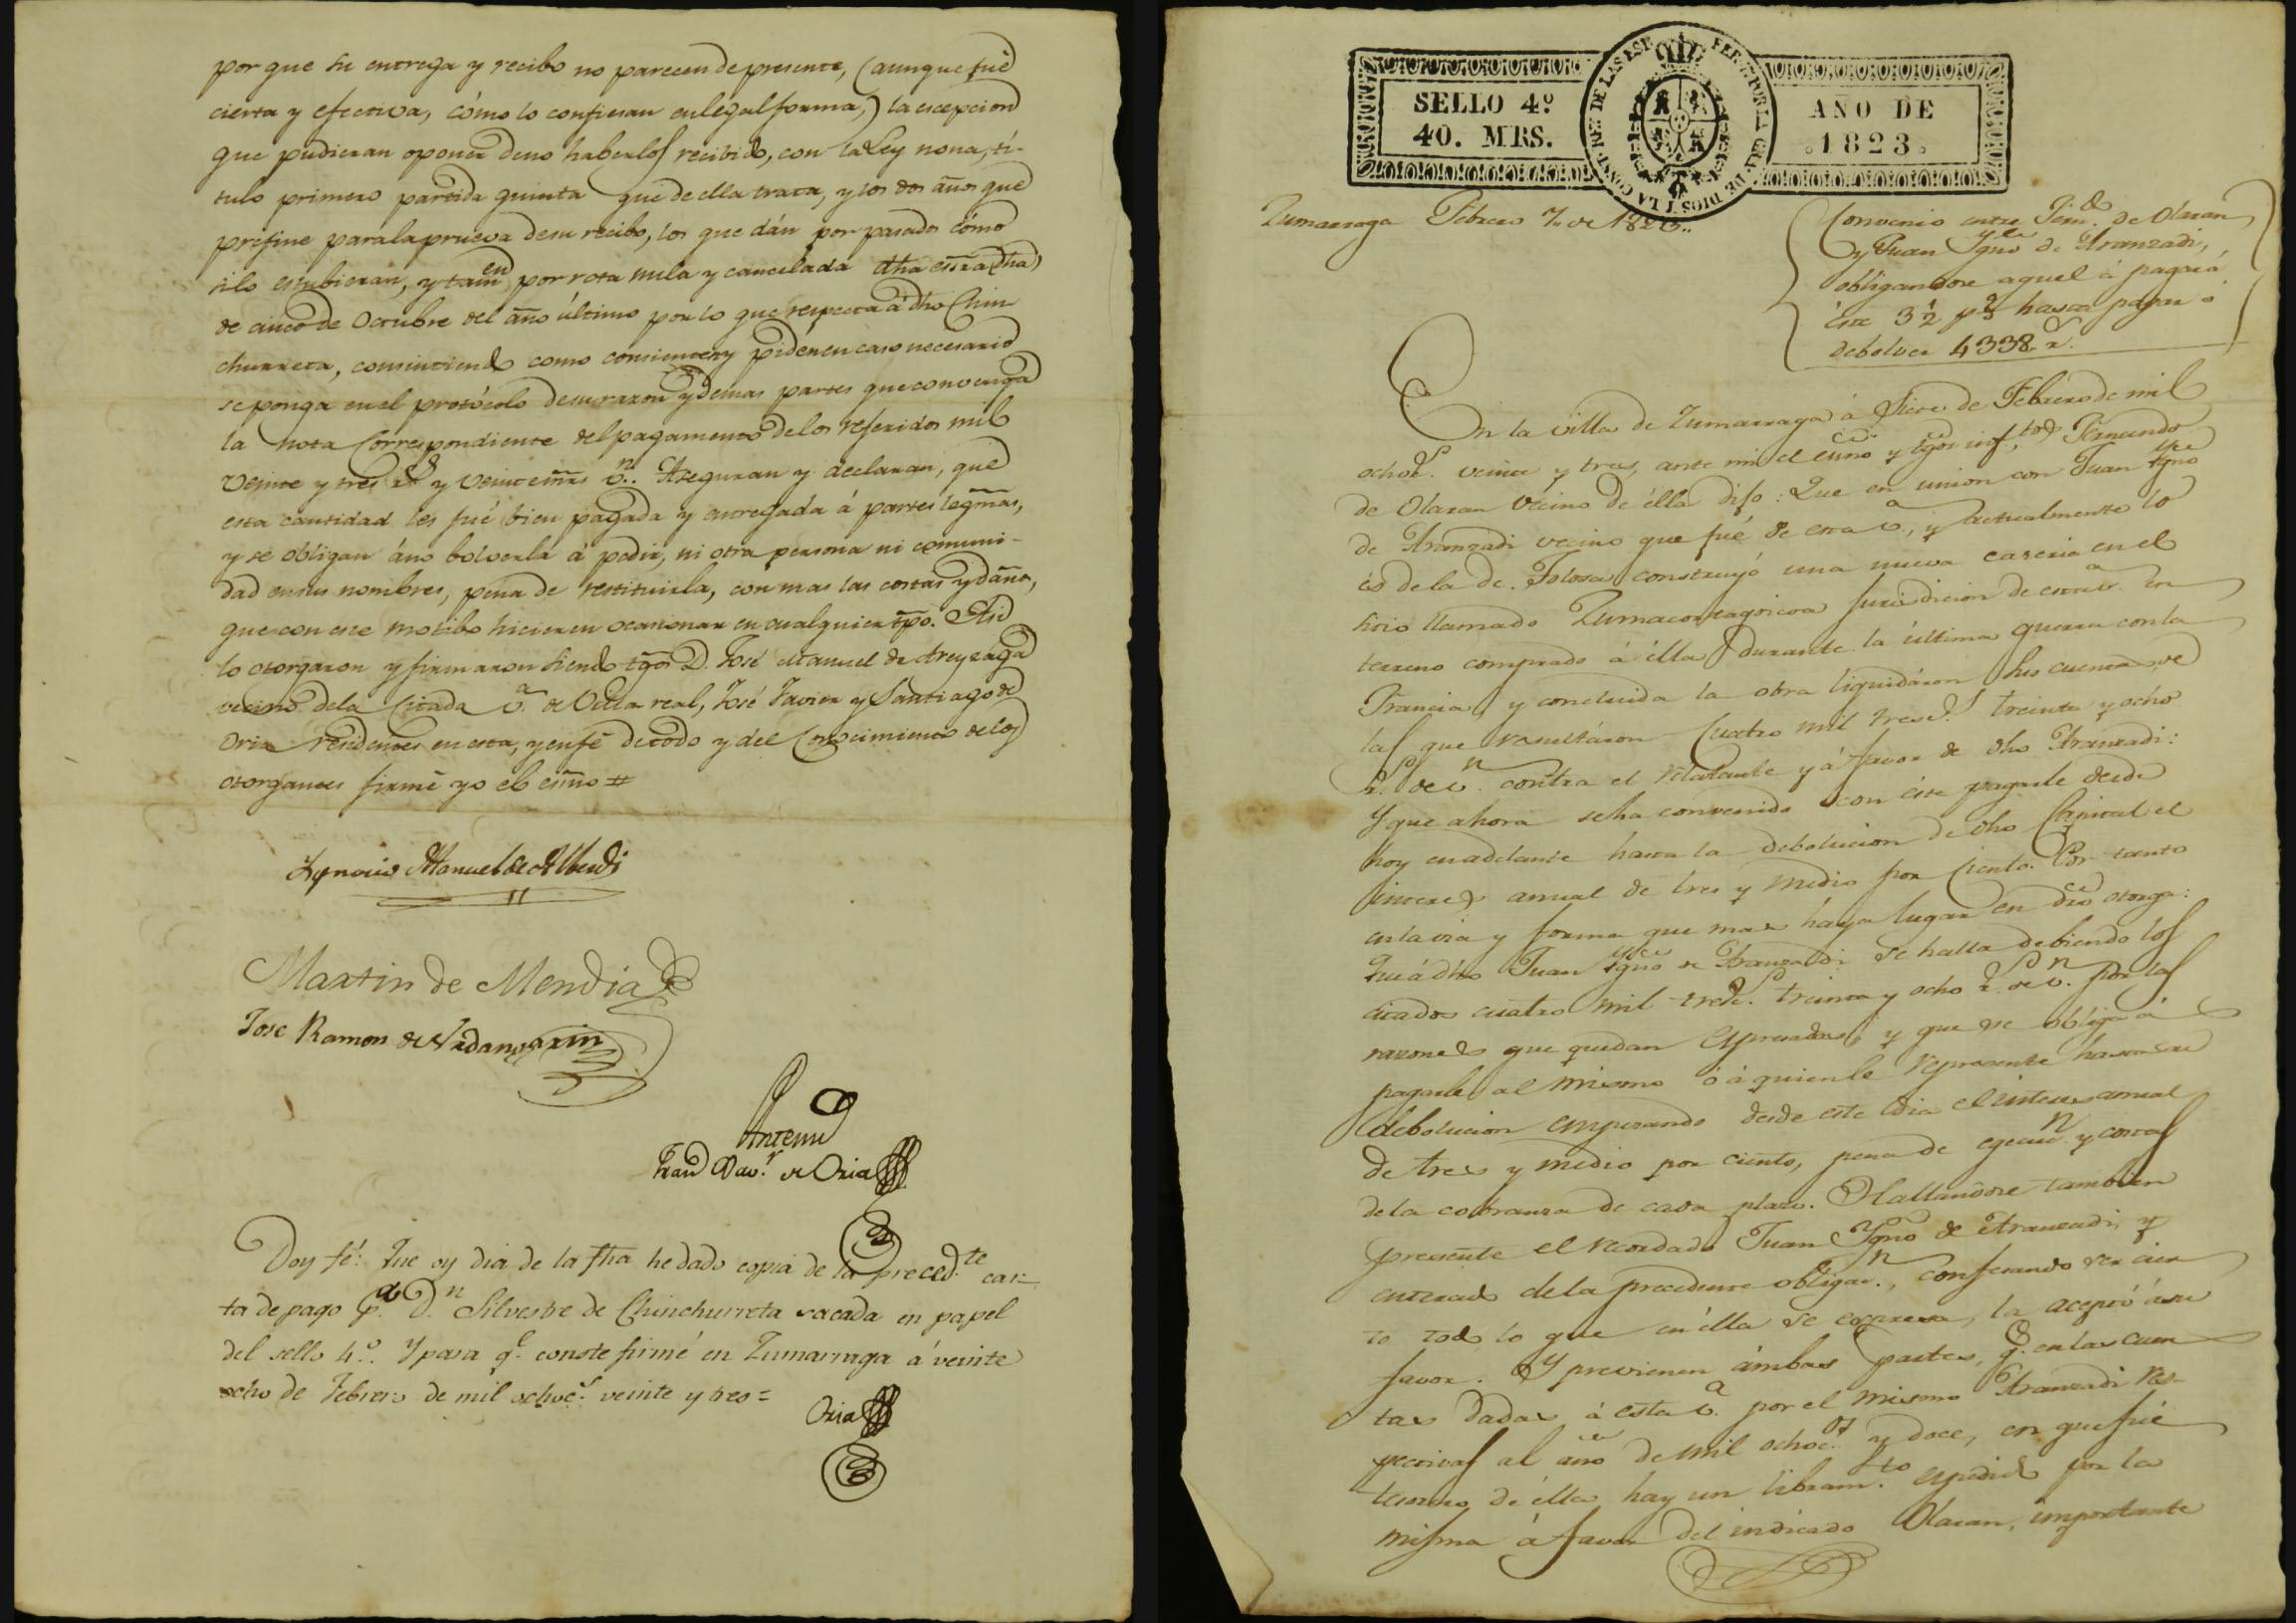 por que su entrega y recibo no parecen de presente, (aunque fué
cierta y efectiva, cómo lo confiesan en legal forma,) la escepcion
que pudieran oponer de no haberlos recibido, con la Ley nona, tí-
tulo primero partida quinta que de ella trata, y los dos años que
prefine para la prueva de su recibo, los que dán por pasados cómo
si lo estubieran, y tamen por rota nula y cancelada dha essra dha
de cinco de Octubre del año último por lo que respecta á dho Chin
churreta, consintiendo como consienten y piden en caso necesario
se ponga en el protócolo de su razon y demas partes que convenga
la nota correspondiente del pagamento de los referidos mil
veinte y tres rs y veinte mrs vn. Aseguran y declaran, que
esta cantidad les fué bien pagada y entregada á partes legmas,
y se obligan á no bolverla á pedir, ni otra persona ni comuni-
dad en sus nombres, pena de restituirla, con mas las costas y daños,
que con este motibo hicieren ocasionar en cualquier tpo. Asi
lo otorgaron y firmaron siendo tgos D. José Manuel de Areyzaga
vecino de la citada va. de Villa real, José Javier y Santiago de
Oria residentes en esta, y en fé de todo y del conocimiento de los
otorgantes firmé yo el essno #
Ygnacio Manuel de Alberdi
Martin de Mendia
Jose Ramon de Urdangarin
Antemi
Fran Xav.r de Oria
Doy fé: Que oy dia de la fha he dado copia de la preced.te car-
ta de pago pa. D.n Silvestre de Chinchurreta sacada en papel
del sello 4.o. Y para q.e conste firmé en Zumarraga á veinte
ocho de Febrero de mil ochoc.s veinte y tres =
Oria
SELLO 4º
40. MRS.
AÑO DE
1823.
FERN. 7 POR LA G. DE DIOS Y LA CONST. REY DE LAS ESP.
Zumarraga Febrero 7,, de 1823..
Convenio entre Fern.do de Olaran
y Juan Ygno de Aranzadi,
obligandose aquel á pagar á
éste 3 1/2 p% hasta pagar ó
debolver 4338 rs.
En la villa de Zumarraga á siete de Febrero de mil
ochos. veinte y tres, ante mi el essno y tgos inf.tos Fernando
de Olaran vecino de élla dijo: Que en union con Juan Ygno
de Aranzadi vecino que fué de esta va., y actualmente lo
es de la de Tolosa construyó una nueva caseria en el
sitio llamado Zumacortagoicoa jurisdicion de esta va. en
terreno comprado á élla durante la última guerra con la
Francia, y concluida la obra liquidáron sus cuentas, de
las que resultáron cuatro mil tresc.s treinta y ocho
rs. de vn. contra el relatante y á favor de dho Aranzadi:
Y que ahora se ha convenido con éste pagarle desde
hoy en adelante hasta la debolucion de dho Capital el
interes annual de tres y medio por ciento. Por tanto
en la via y forma que mas haya lugar en dro otorga:
Que á dho Juan Ygno de Aranzadi se halla debiendo los
citados cuatro mil tresc. treinta y ocho rs. de vn. por las
razones que quedan espresadas, y que se obliga á
pagarle al mismo ó á quien le represente hasta su
debolucion empezando desde este dia el interes annual
de tres y medio por ciento, pena de egecuon. y costas
de la cobranza de cada plazo. Hallandose tambien
presente el recordado Juan Ygno de Aranzadi, y
enterado de la precedente obligan., confesando ser cier
to todo lo que en élla se expresa, la aceptó á su
favor. Y previenen ámbas partes, q. en las cuen
tas dadas á esta va. por el mismo Aranzadi res-
pectivas al año de mil ochoc.os y doce, en que fué
tesorero de élla hay un libram.to espedido por la
misma á favor del indicado Olaran, importante